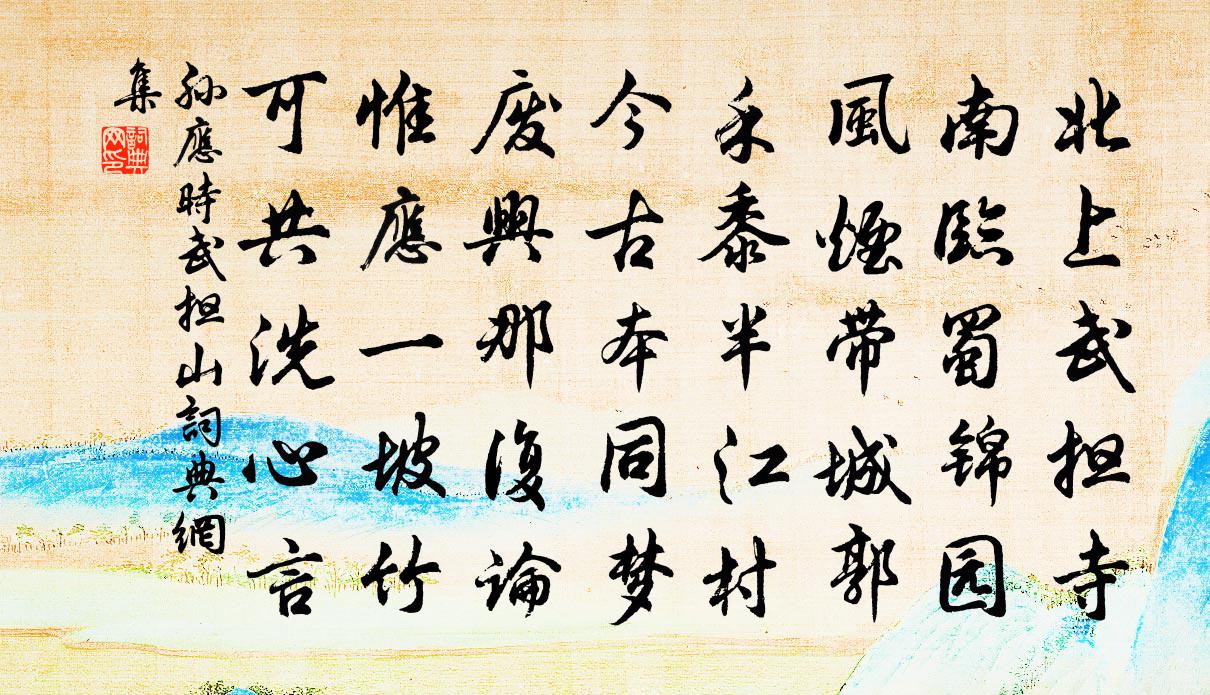 北上武担寺
南臨蜀锦园
風煙带城郭
禾黍半江村
今古本同梦
废興那復論
惟應一坡竹
可共洗心言
孙應時武担山詞典網
集
詞典网印